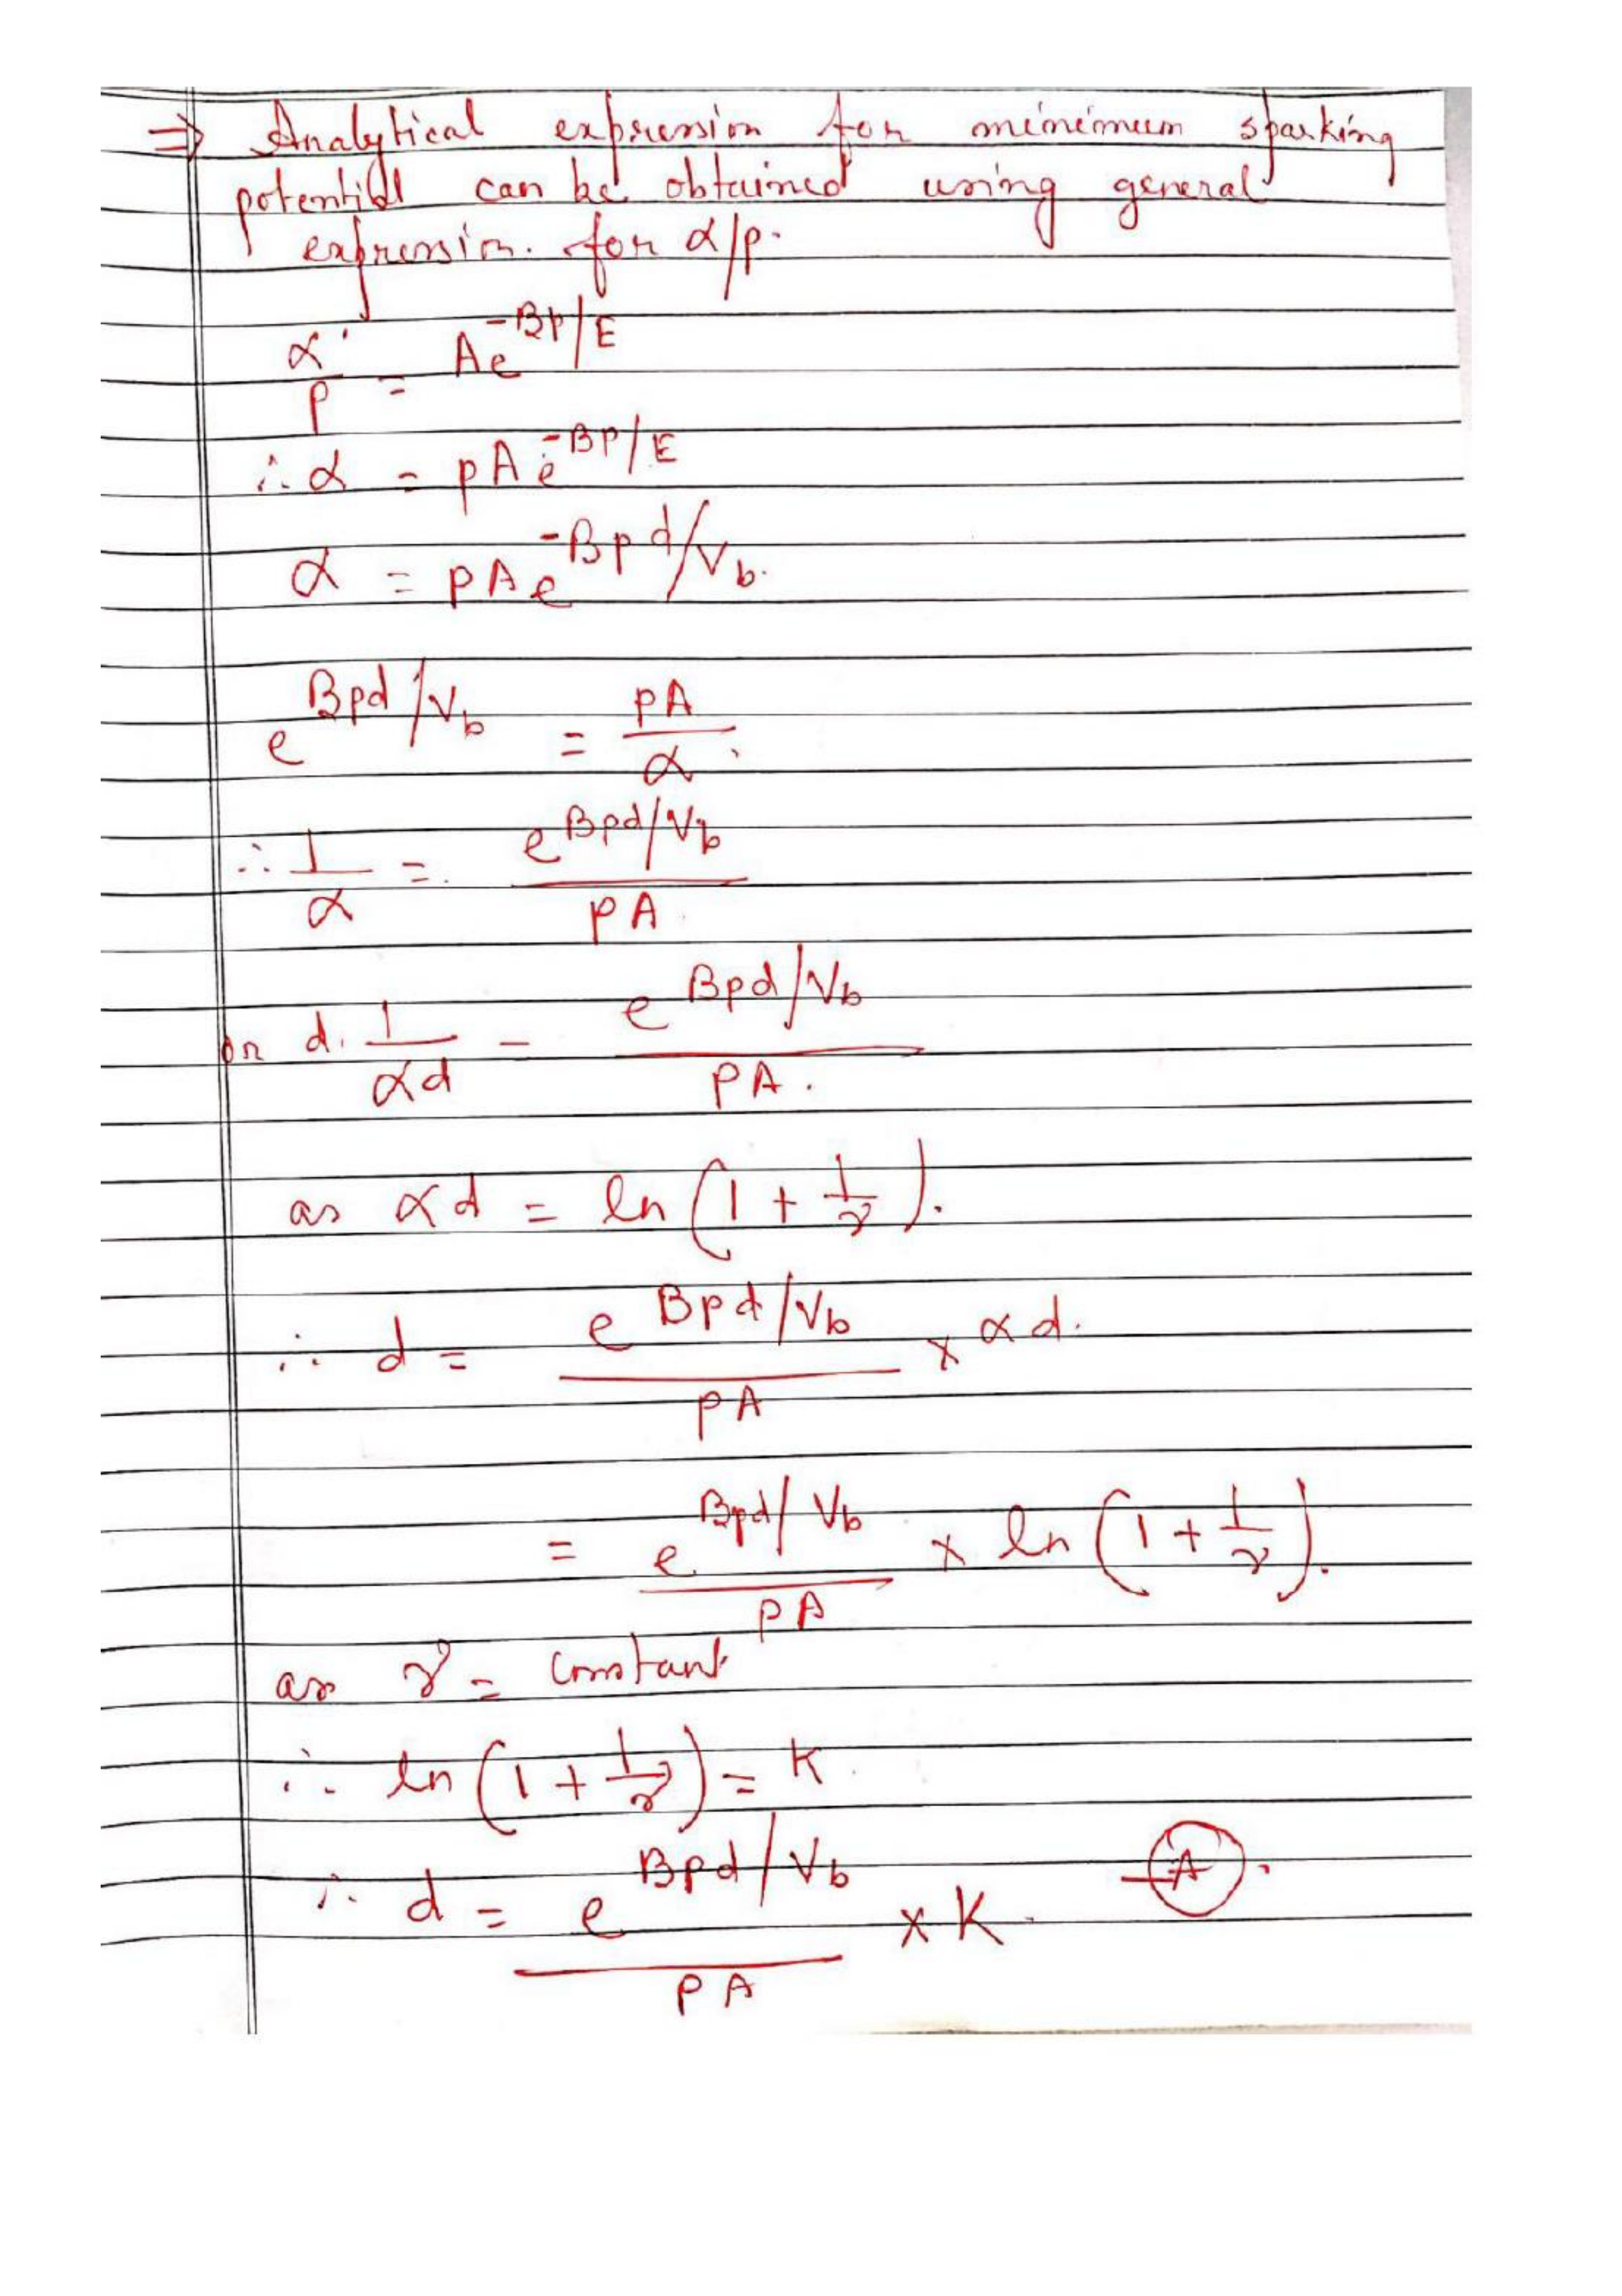 ⇒ Analytical expression for minimum sparking
potential can be obtained using general
expression. for α/p.
α/p = Ae^(-Bp/E)
∴ α = pAe^(-Bp/E)
α = pAe^(-Bpd/Vb).
e^(Bpd/Vb) = pA/α.
∴ 1/α = e^(Bpd/Vb)/pA.
or d. 1/αd = e^(Bpd/Vb)/pA.
as αd = ln(1 + 1/γ).
∴ d = e^(Bpd/Vb)/pA × αd.
= e^(Bpd/Vb)/pA × ln(1 + 1/γ).
as γ = constant
∴ ln(1 + 1/γ) = K.
∴ d = e^(Bpd/Vb)/pA × K. —(A).